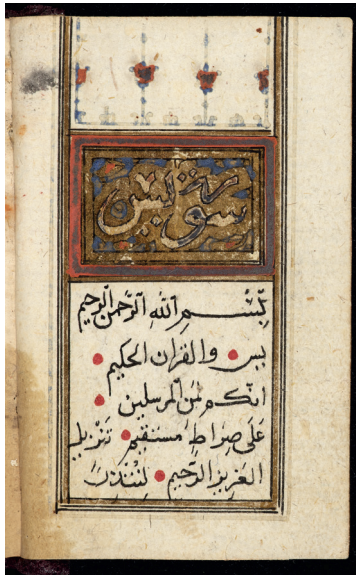 سورة يس
بِسْمِ اللّٰهِ الرَّحْمٰنِ الرَّحِيمِ
يس والقران الحكيم
انكم لمن المرسلين
عَلى صِرَاطٍ مستقيم تَنْزيل
العَزيز الرّحيم لِتُنْذِرَ